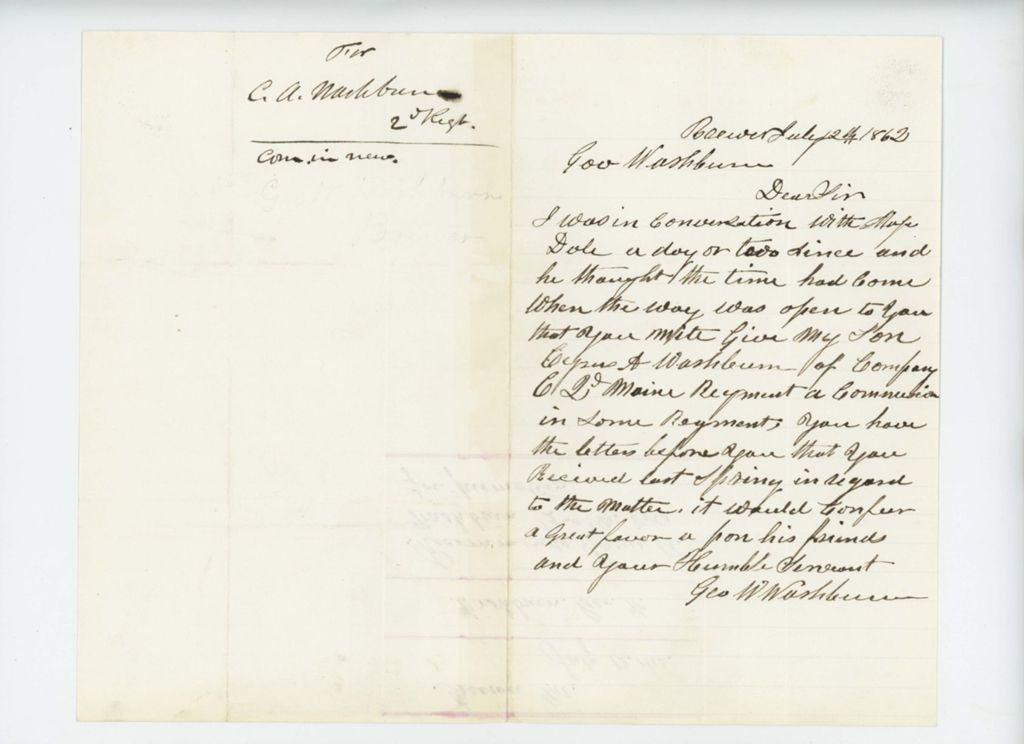 For
C. A. Washburn
2d Regt.
Com. in new.
Brewer July 24 1862
Gov Washburn
Dear Sir
I was in Conversation With Maj
Dole a day or two since and
he thought the time had Come
When the way was open to you
that you mite Give My Son
Cyrus A Washburn of Company
C 2d Maine Regment a Commission
in Some Regment, you have
the letters before you that you
Recieved last Spring in regard
to the Matter. it would Confeer
a great favor a pon his friends
and your Humble Servant
Geo W Washburn